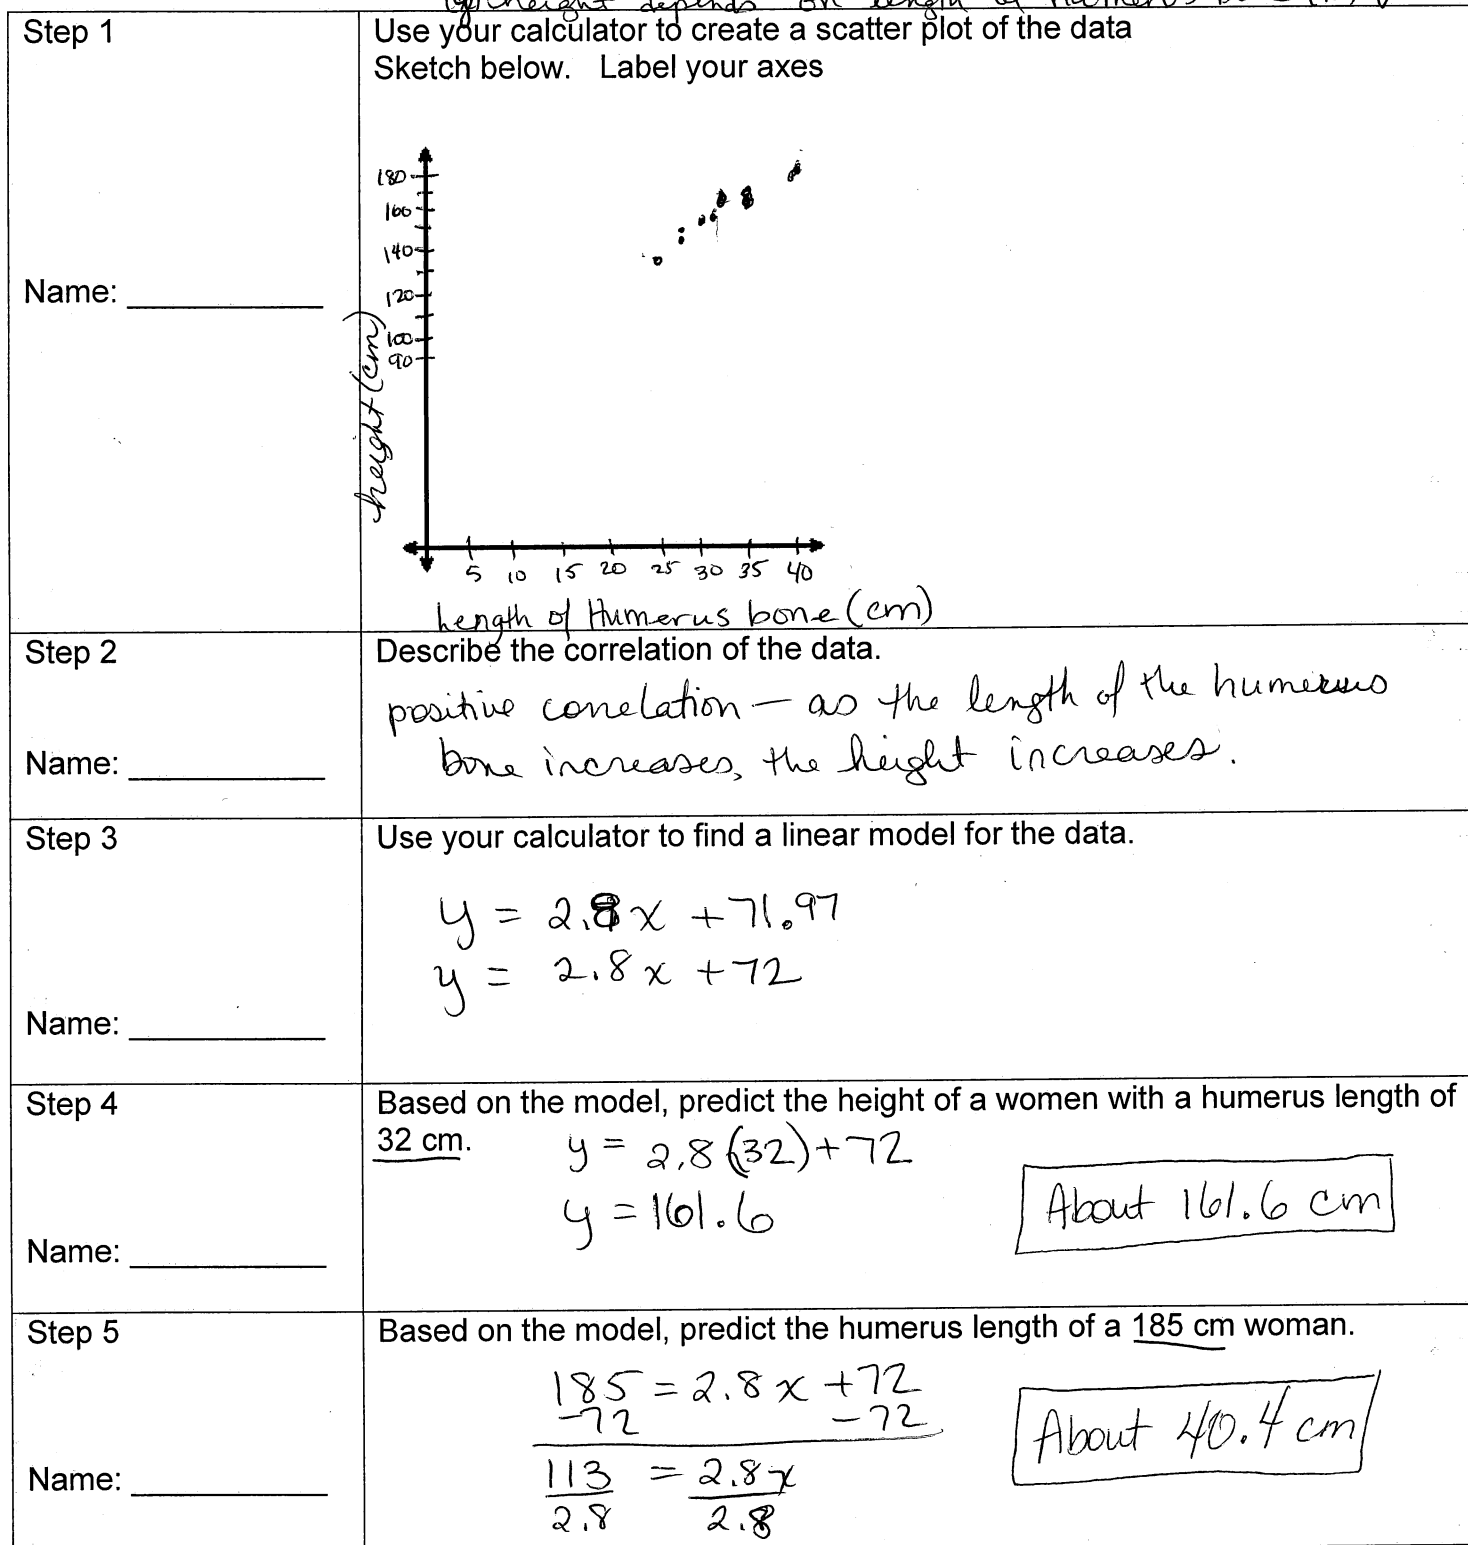 height depends on length of humerus bone
Step 1
Use your calculator to create a scatter plot of the data
Sketch below. Label your axes
180
160
140
120
100
90
height (cm)
5 10 15 20 25 30 35 40
Length of Humerus bone (cm)
Name:
Step 2
Describe the correlation of the data.
positive correlation — as the length of the humerus
bone increases, the height increases.
Name:
Step 3
Use your calculator to find a linear model for the data.
y = 2.8x + 71.97
y = 2.8x + 72
Name:
Step 4
Based on the model, predict the height of a women with a humerus length of
32 cm.
y = 2.8(32) + 72
y = 161.6
About 161.6 cm
Name:
Step 5
Based on the model, predict the humerus length of a 185 cm woman.
185 = 2.8x + 72
-72 -72
113 = 2.8x
2.8 2.8
About 40.4 cm
Name: